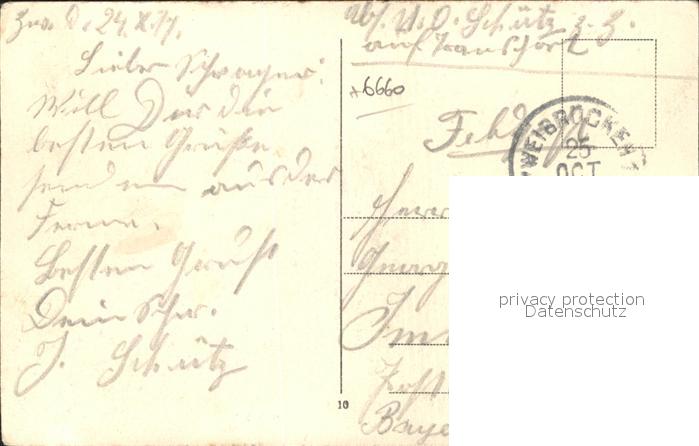 Zw. d. 24.X.17.
Lieber Schwager!
Will Dir die
besten Grüße
senden aus der
Ferne.
Besten Gruß
Dein Schw.
J. Schütz
Abs. U.O. Schütz z. Z.
auf Transport
+6660
Feldp
ZWEIBRÜCKEN
25
OCT
Herr
Georg
Post
Baye
10
privacy protection
Datenschutz